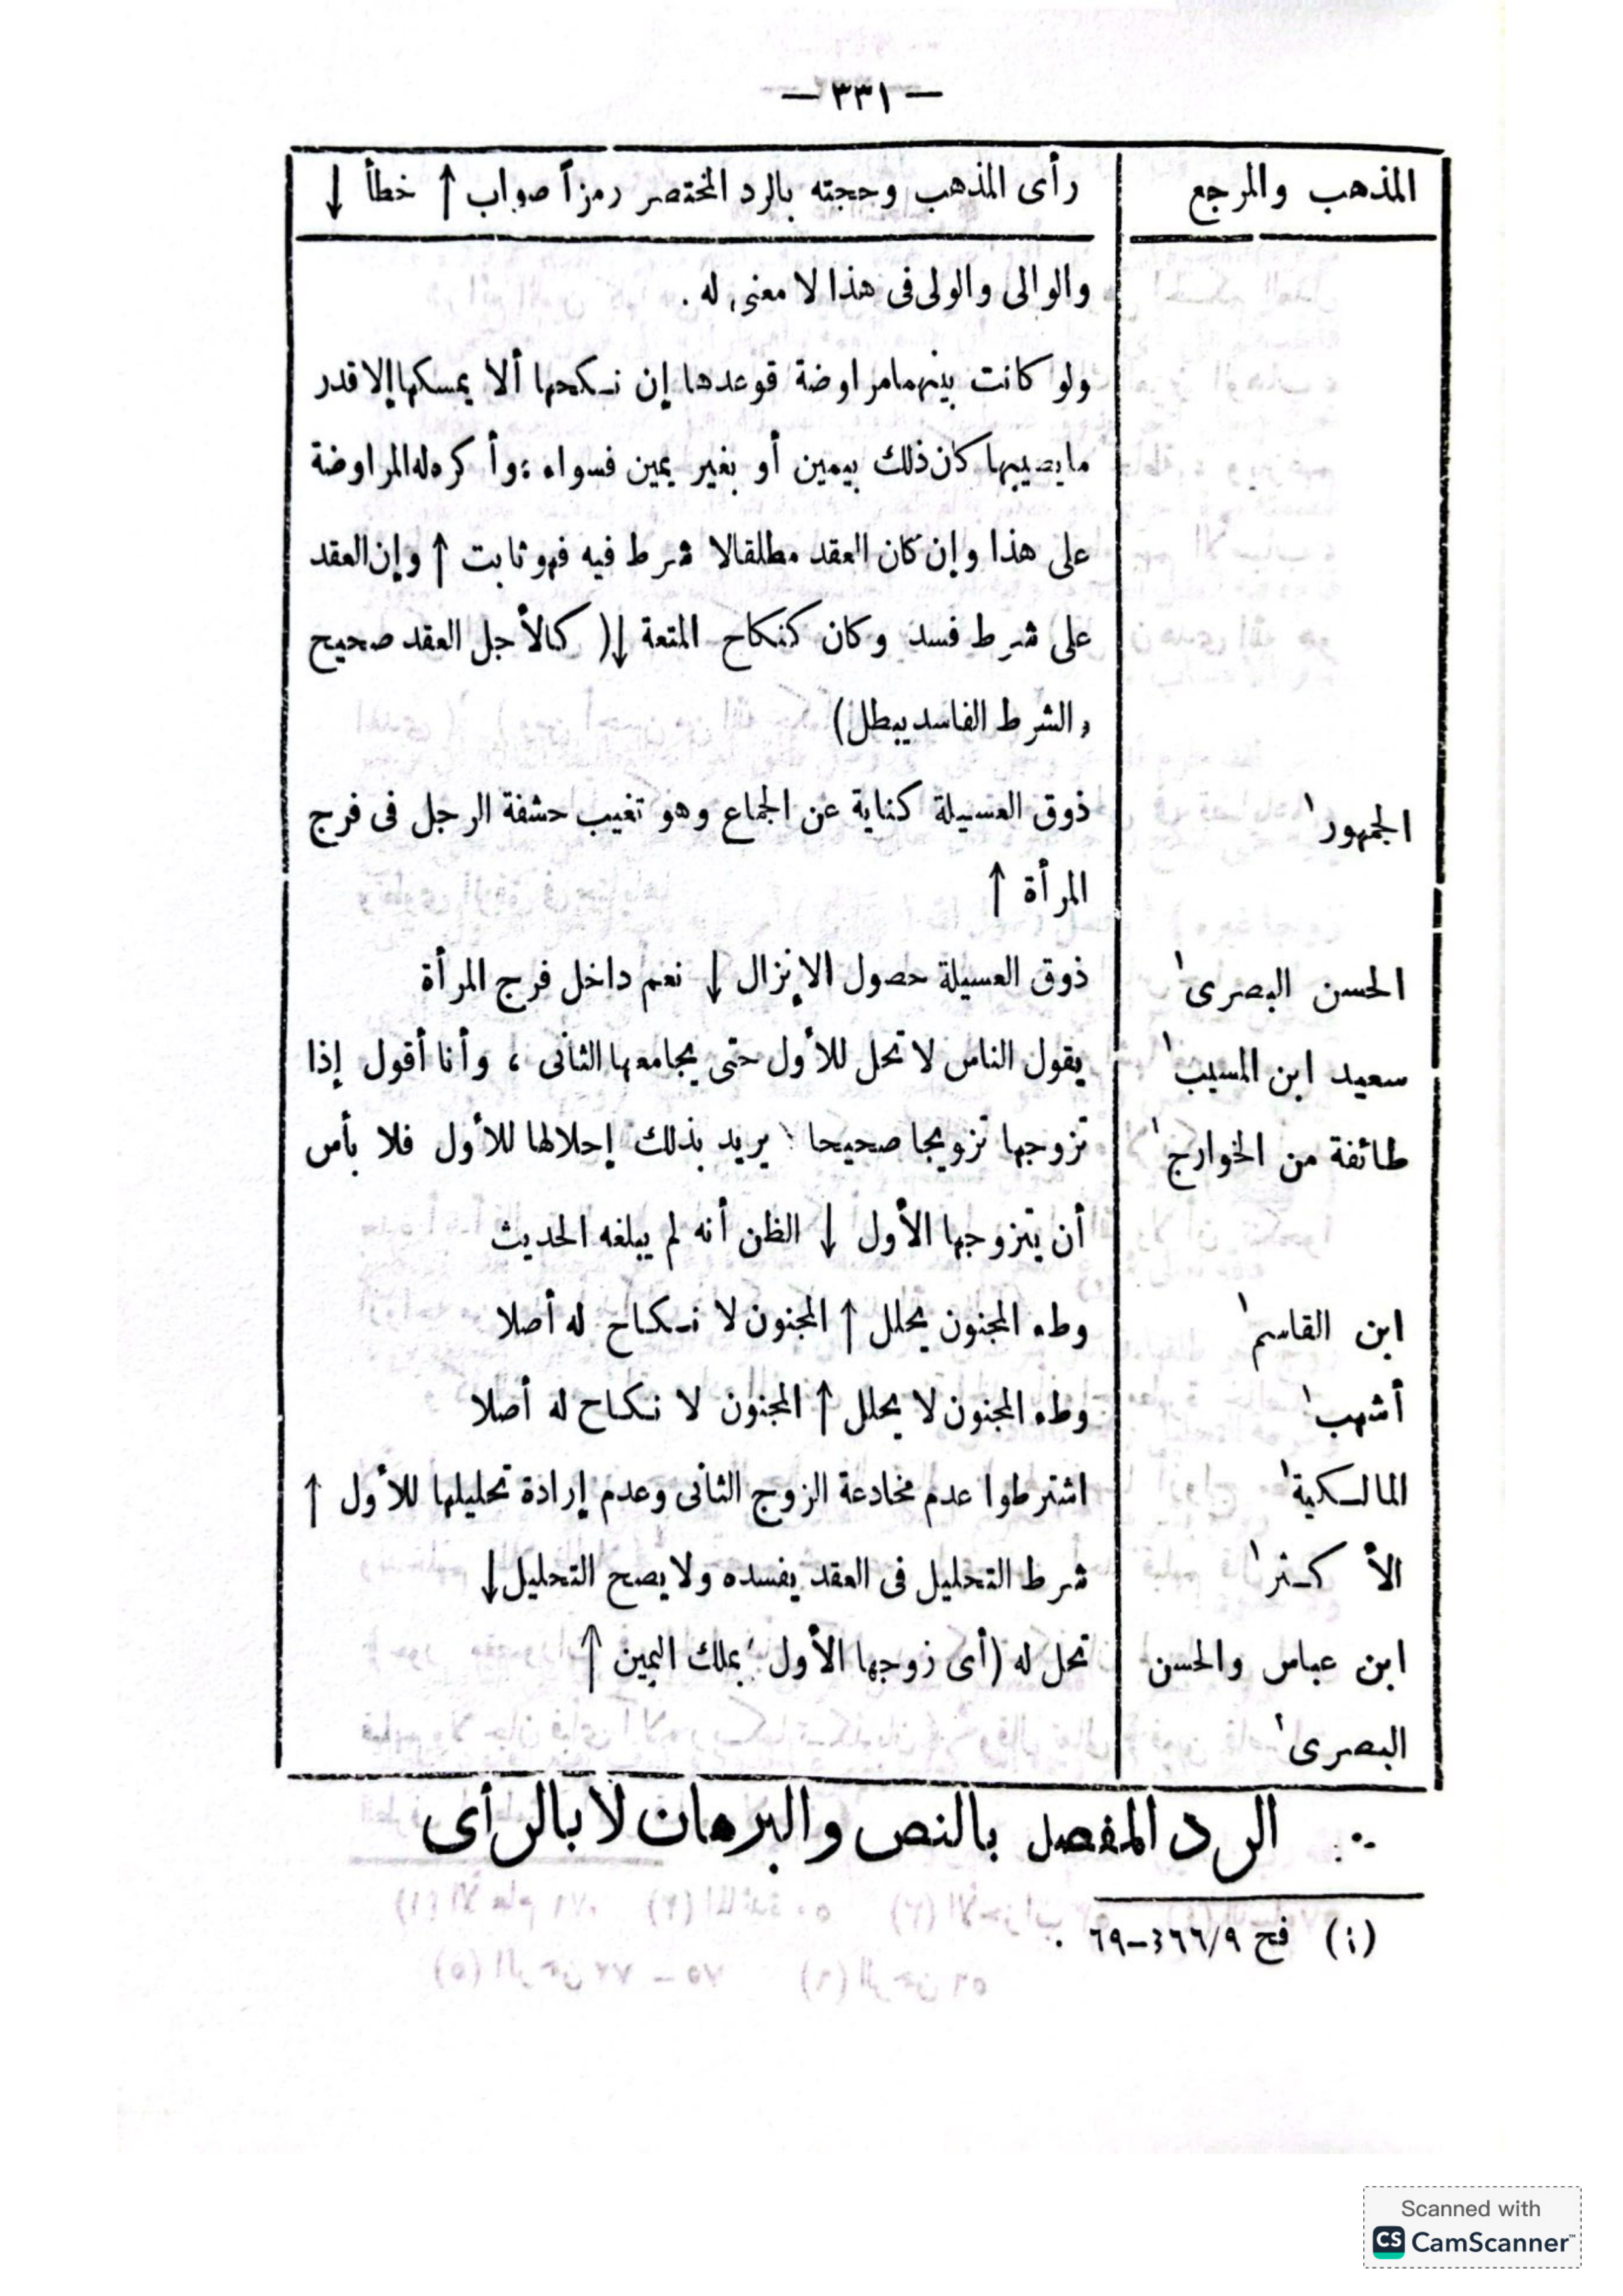 — ٣٣١ —
المذهب والمرجع
رأى المذهب وحجته بالرد المختصر رمزاً صواب ↑ خطأ ↓
والوالى والولى فى هذا لا معنى له .
ولو كانت بينهما مراوضة فوعدها إن نـكحها ألا يمسكها إلا قدر
ما يصيبها كان ذلك بيمين أو بغير يمين فسواء ؛ وأكره له المراوضة
على هذا وإن كان العقد مطلقا لا شرط فيه فهو ثابت ↑ وإن العقد
على شرط فسد وكان كنكاح المتعة ↓ ( كالأجل العقد صحيح
والشرط الفاسد يبطل )
الجمهور١
ذوق العسيلة كناية عن الجماع وهو تغيب حشفة الرجل فى فرج
المرأة ↑
الحسن البصرى١
ذوق العسيلة حصول الإنزال ↓ نعم داخل فرج المرأة
سعيد ابن المسيب١
يقول الناس لا تحل للأول حتى يجامعها الثانى ، وأنا أقول إذا
طائفة من الخوارج١
تزوجها تزويجا صحيحا يريد بذلك إحلالها للأول فلا بأس
أن يتزوجها الأول ↓ الظن أنه لم يبلغه الحديث
ابن القاسم١
وطء المجنون يحلل ↑ المجنون لا نـكاح له أصلا
أشهب١
وطء المجنون لا يحلل ↑ المجنون لا نـكاح له أصلا
المالـكية١
اشترطوا عدم مخادعة الزوج الثانى وعدم إرادة تحليلها للأول ↑
الأكـثر١
شرط التحليل فى العقد يفسده ولا يصح التحليل ↓
ابن عباس والحسن
تحل له (أى زوجها الأول) بملك اليمين ↑
البصرى١
∴ الرد المفصل بالنص والبرهان لا بالرأى
(١) فح ٩/٣٦٦–٦٩ .
Scanned with
CS CamScanner™